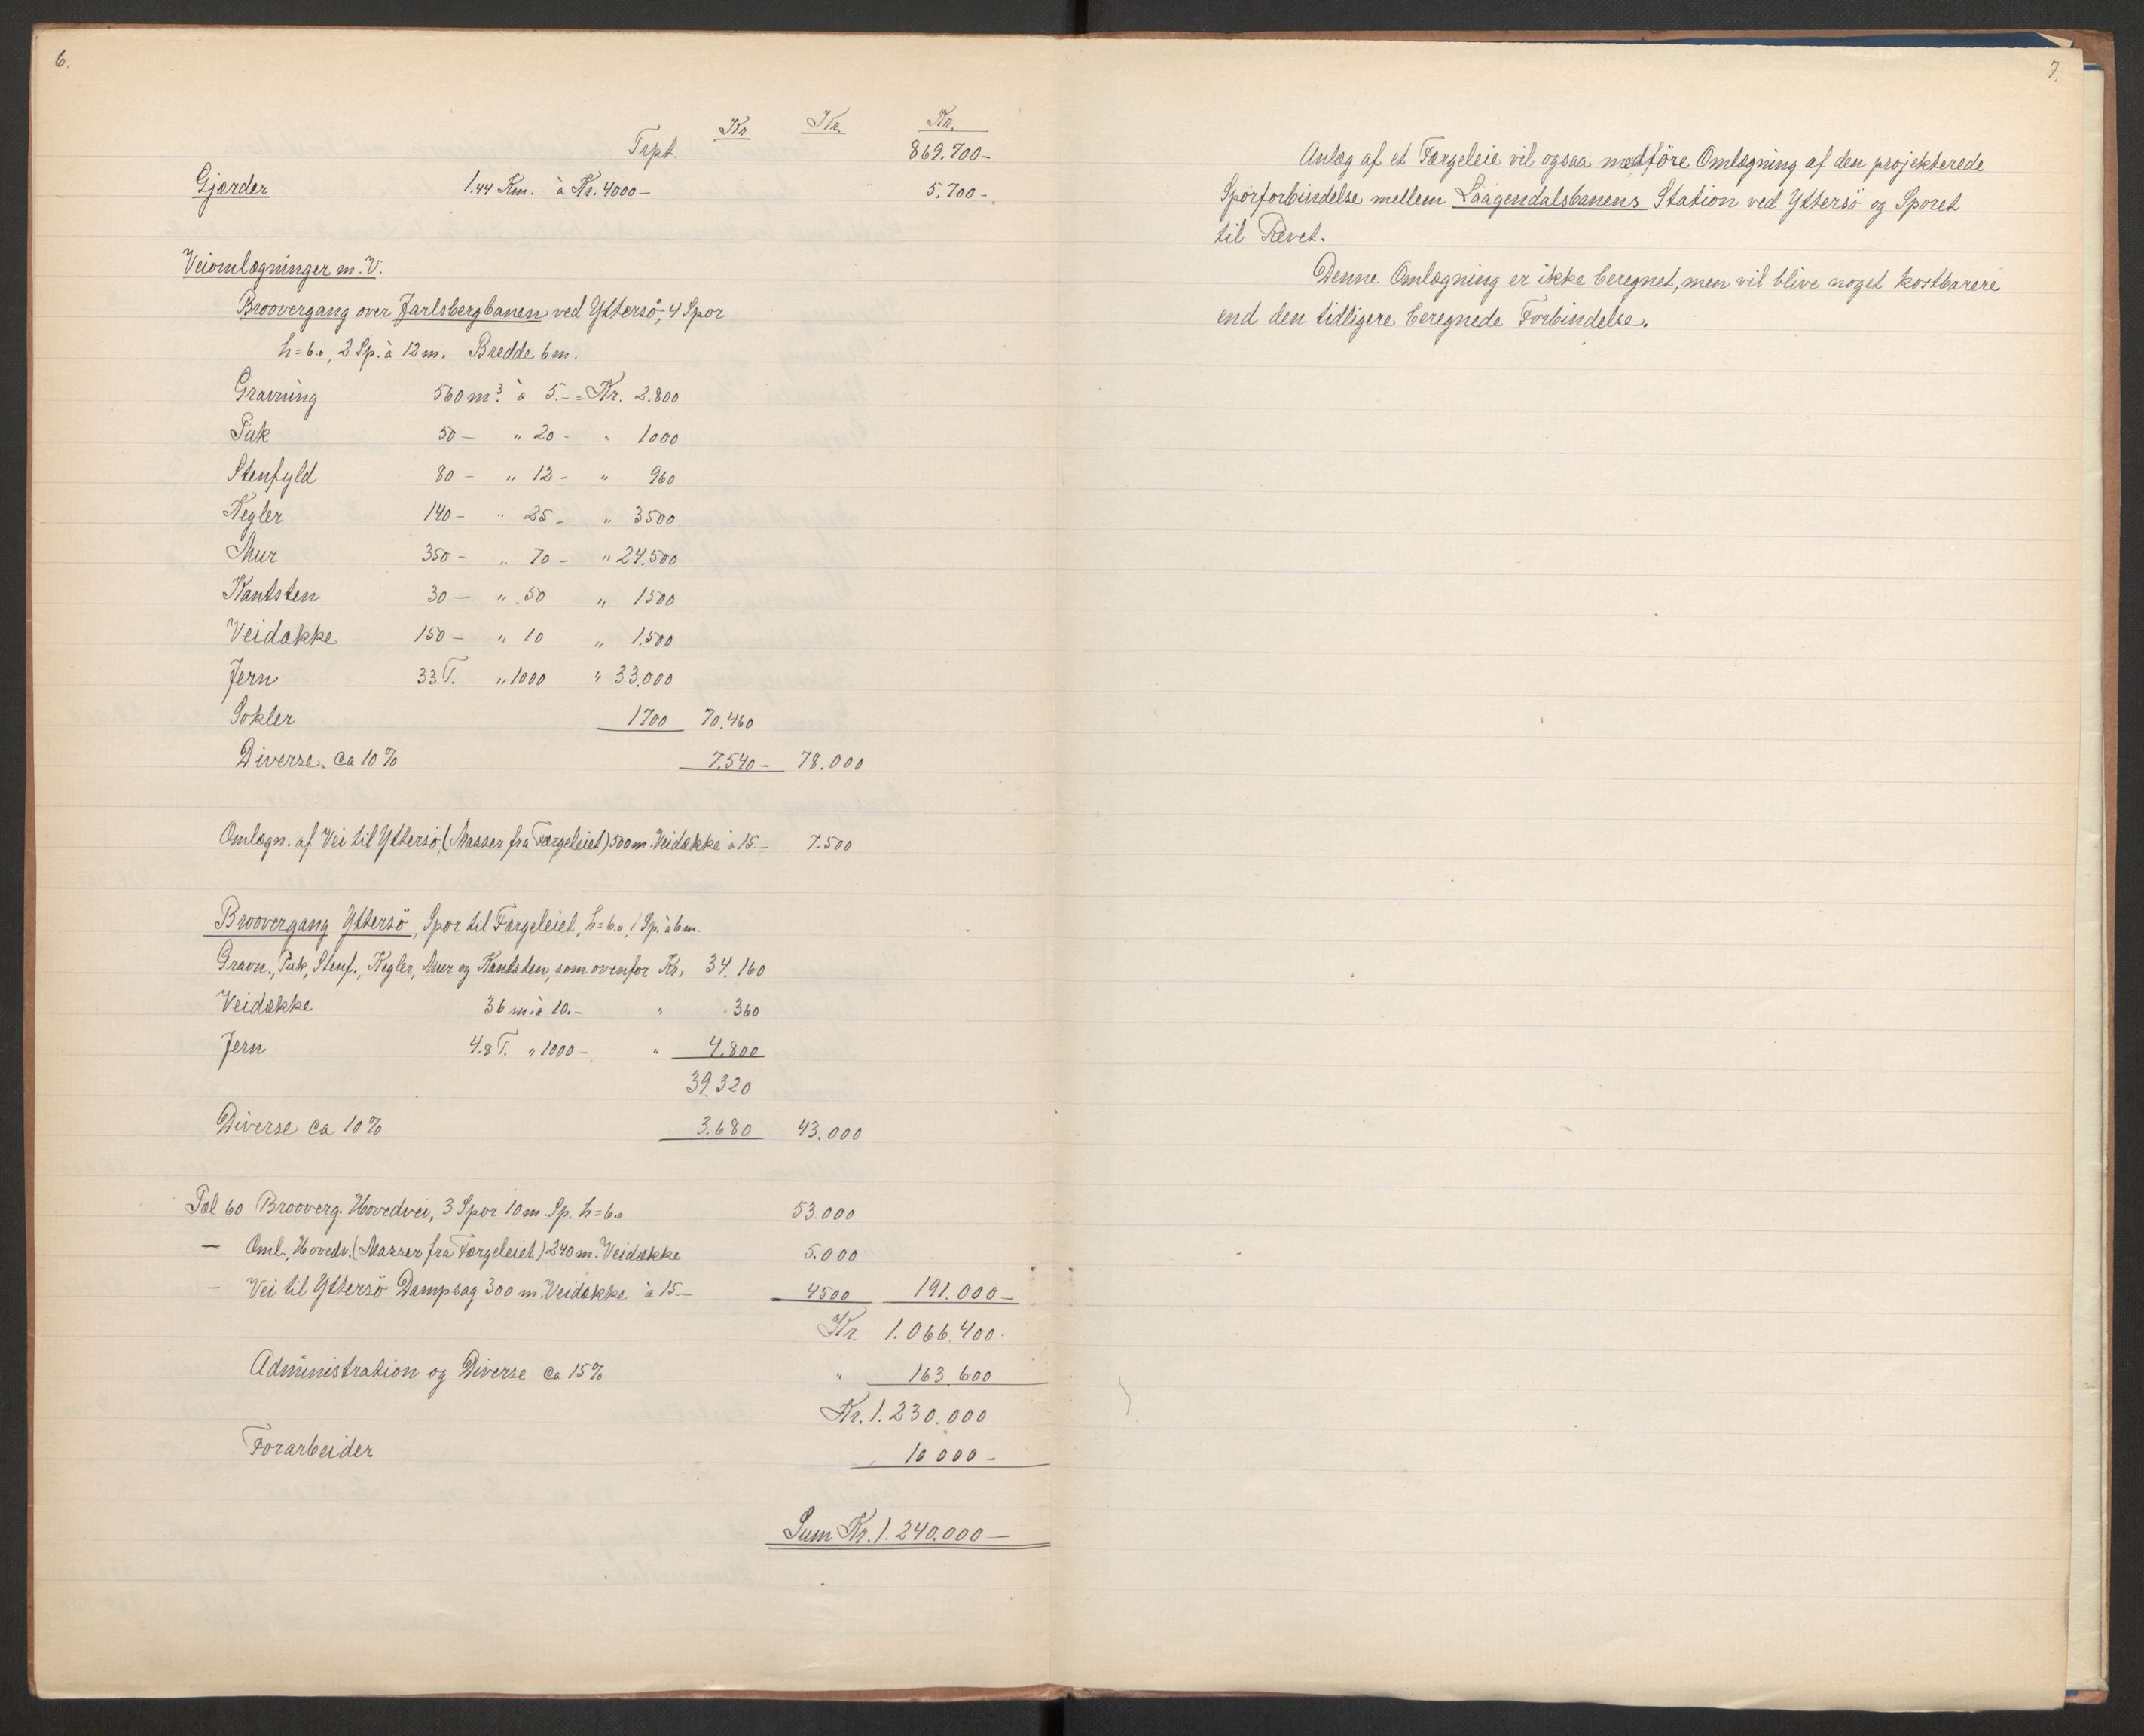 6.
Kr Kr. Kr.
Trpt. 869.700-
Gjærder 1.44 Km. à Kr. 4000- 5.700-
Veiomlægninger m.V.
Broovergang over Jarlsbergbanen ved Yttersö, 4 Spor
h=6.0, 2 Sp. à 12 m. Bredde 6 m.
Gravning 560 m³. à 5.- = Kr. 2.800
Puk 50 - " 20 - " 1000
Stenfyld 80 - " 12 - " 960
Kegler 140 - " 25 - " 3500
Mur 350 - " 70 - " 24.500
Kantsten 30 - " 50 " 1500
Veidække 150 - " 10 " 1.500
Jern 33 T. " 1000 " 33.000
Sokler 1700 70.460
Diverse. ca 10% 7.540- 78.000
Omlægn. af Vei til Yttersö, (Masser fra Færgeleiet) 500 m. Veidække à 15.- 7.500
Broovergang Yttersö, Spor til Færgeleiet, h=6.0, 1 Sp. à 6 m.
Gravn., Puk, Stenf., Kegler, Mur og Kantsten, som ovenfor Kr. 34.160
Veidække 36 m. à 10.- " 360
Jern 4.8 T. " 1000- " 4.800
39.320
Diverse ca 10% 3.680 43.000
Pæl 60 Brooverg. Hovedvei, 3 Spor 10 m. Sp. h=6.0 53.000
- Oml. Hovedv. (Masser fra Færgeleiet) 240 m. Veidække 5.000
- Vei til Yttersö Dampsag 300 m. Veidække à 15.- 4500 191.000-
Kr. 1.066.400-
Administration og Diverse ca 15% " 163.600
Kr. 1.230.000
Forarbeider 10 000-
Sum Kr. 1.240.000-
7.
Anlæg af et Færgeleie vil ogsaa medföre Omlægning af den projekterede
Sporforbindelse mellem Laagendalsbanens Station ved Yttersö og Sporet
til Revet.
Denne Omlægning er ikke beregnet, men vil blive noget kostbarere
end den tidligere beregnede Forbindelse.